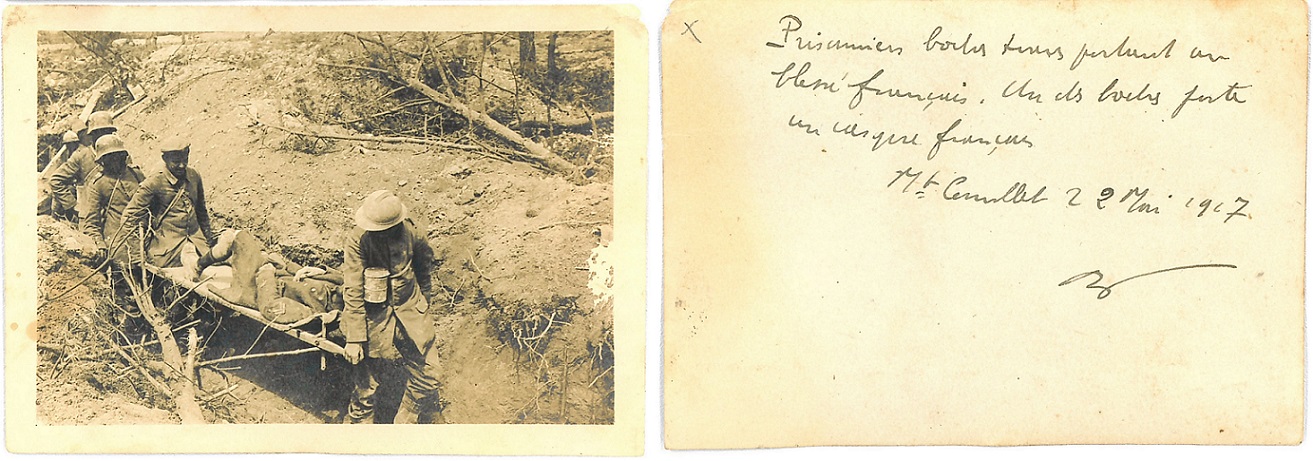 Prisonniers boches portant un
blessé français. Un des boches porte
un casque français
Mt Cornillet 22 Mai 1917